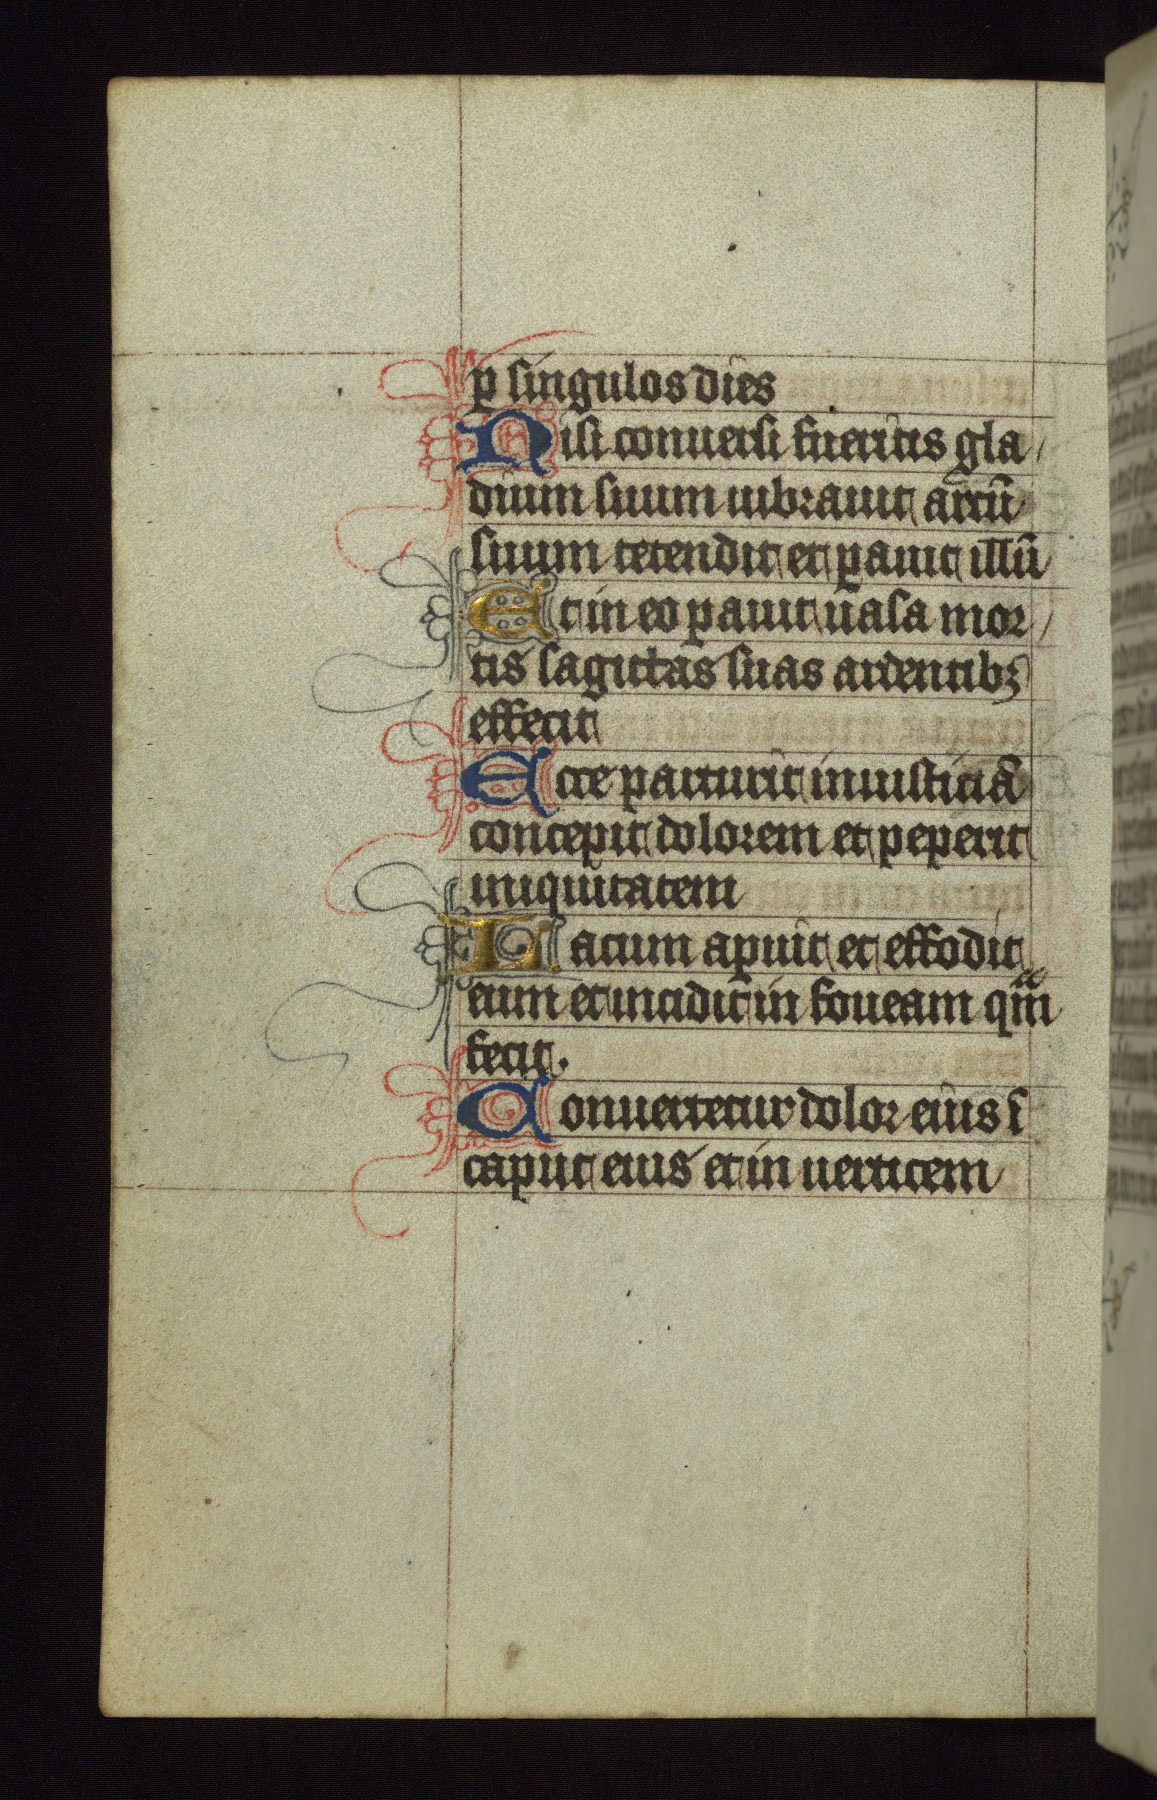 ꝑ singulos dies
Nisi conuersi fueritis gla
dium suum uibrauit arcū
suum tetendit et ꝑauit illū
Et in eo ꝑauit uasa mor
tis sagittas suas ardentibꝫ
effecit
Ecce parturit iniusticiā
concepit dolorem et peperit
iniquitatem
Lacum apuit et effodit
eum et incidit in foueam qm̄
fecit.
Conuertetur dolor eius ī
caput eius et in uerticem